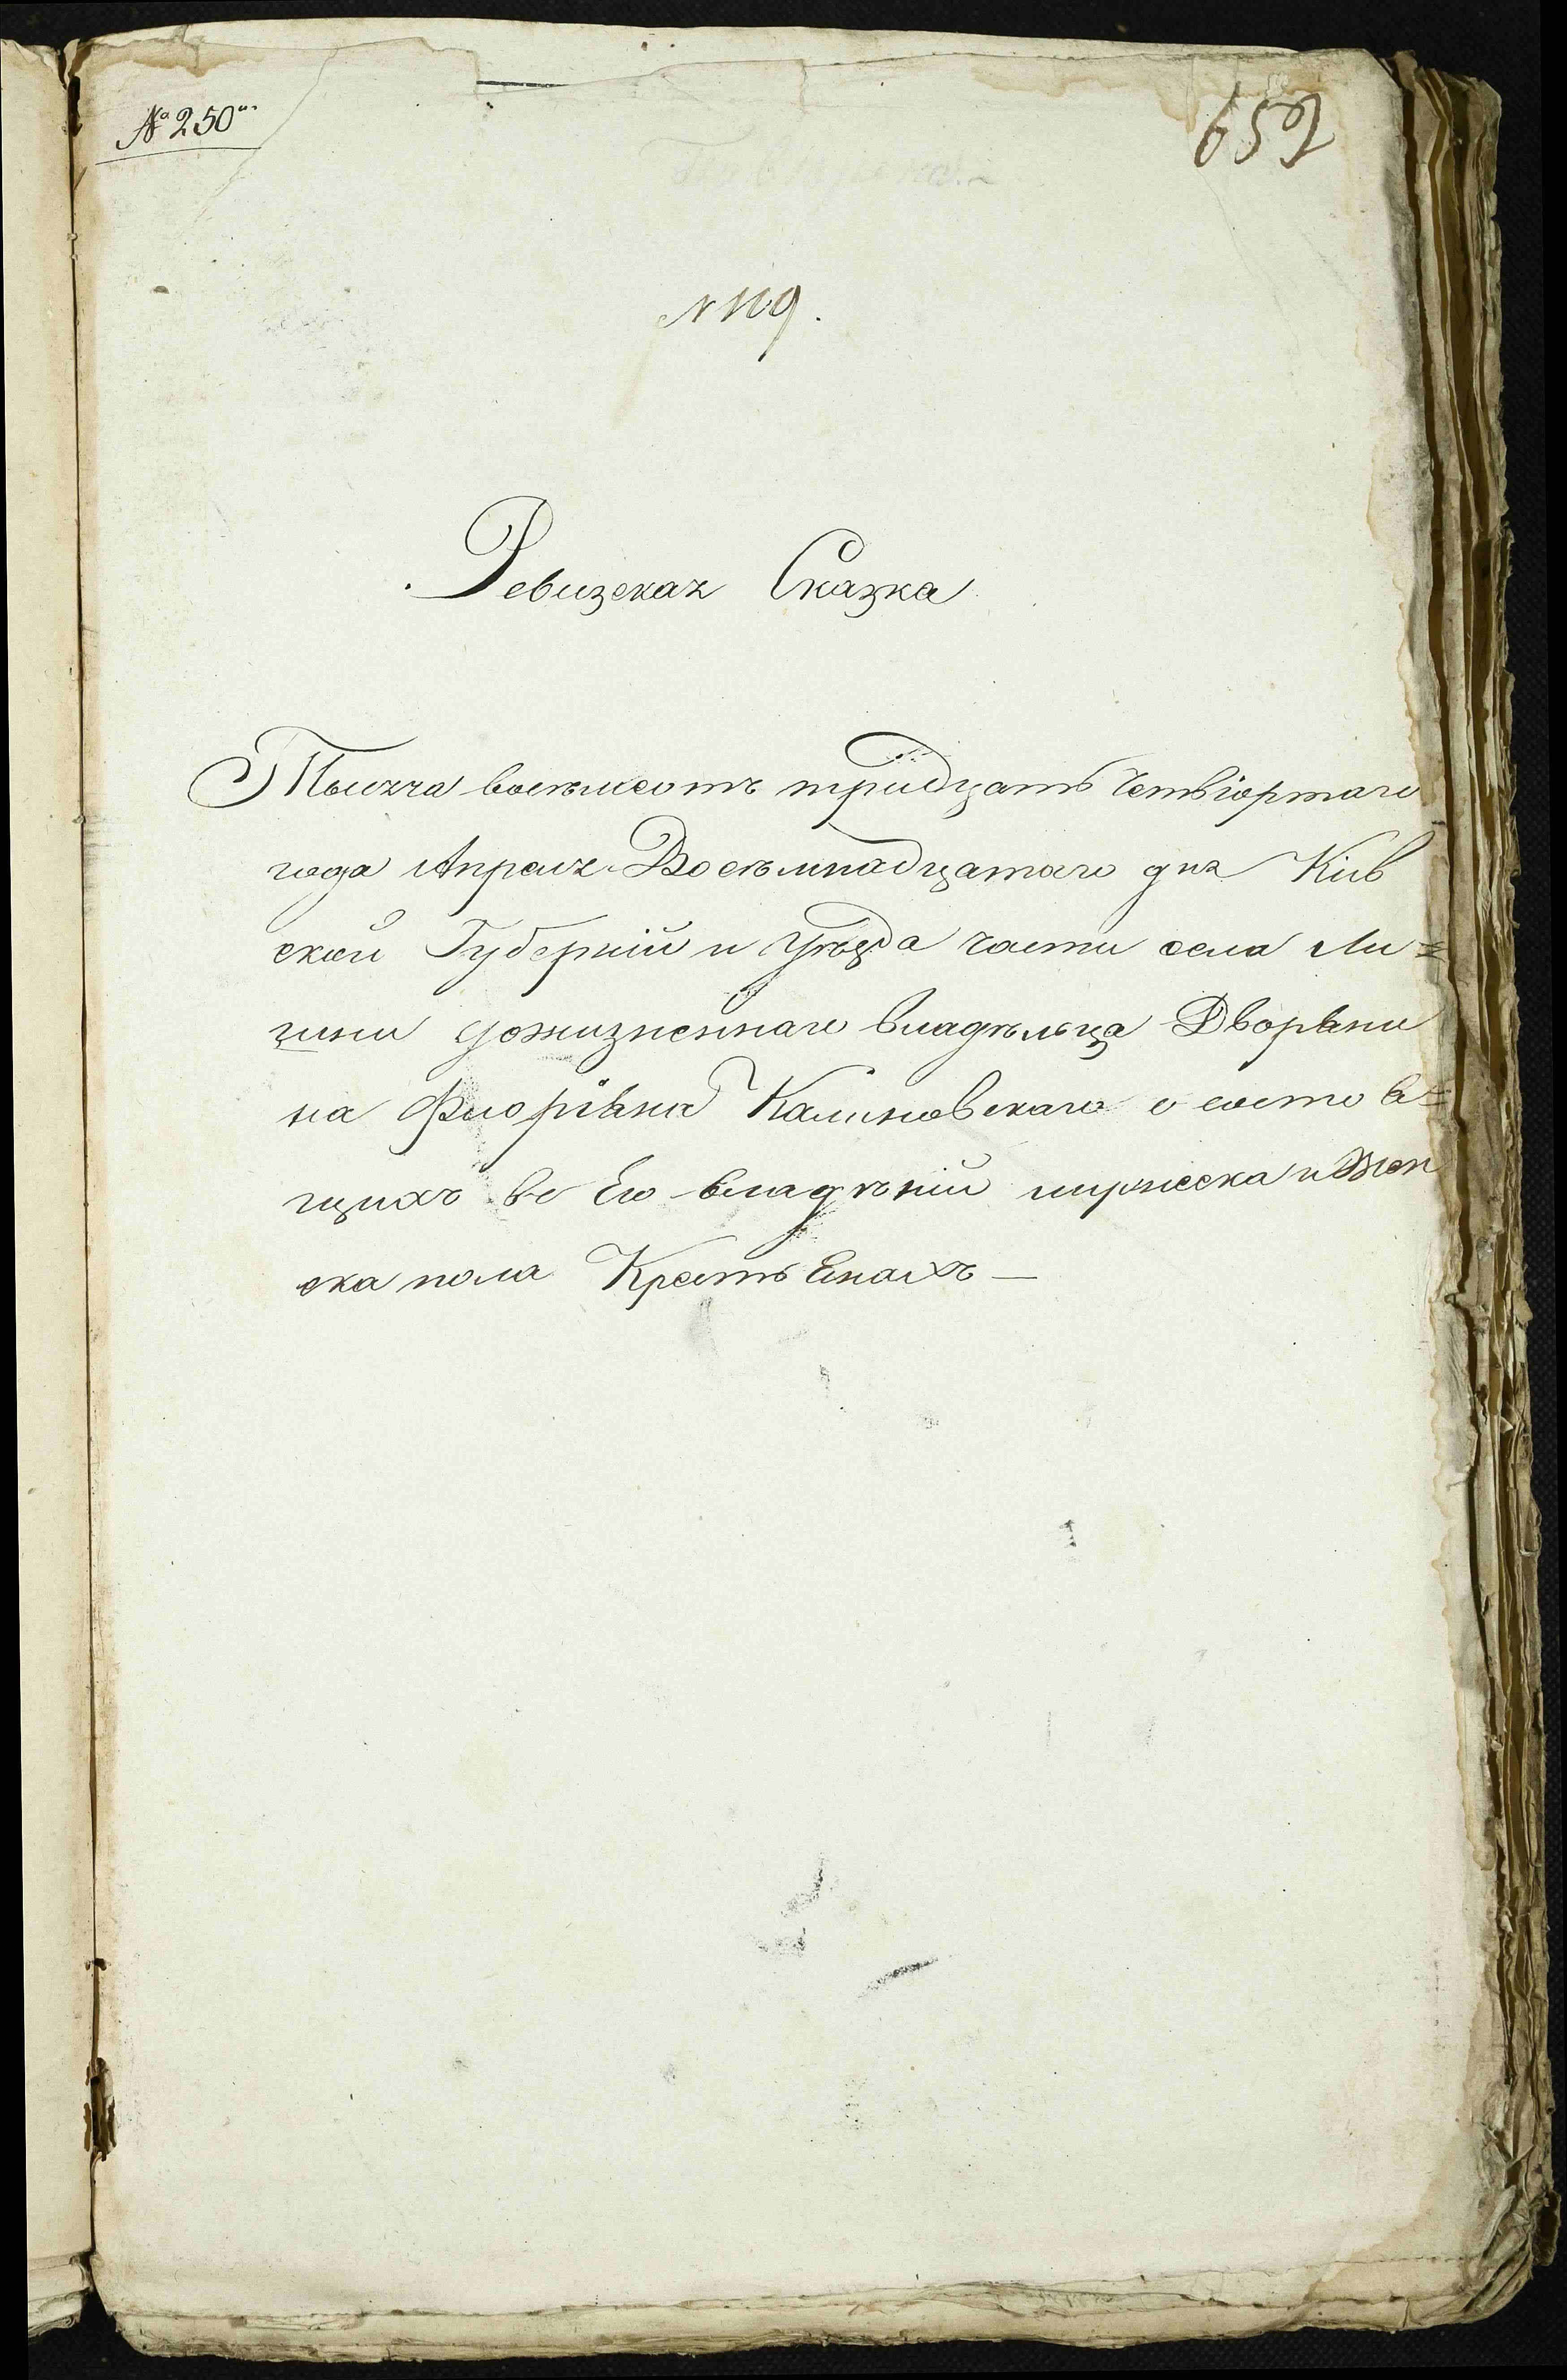 № 250й
659
N 119.
Ревизская Сказка
Тысяча восемьсотъ тридцать Четвіортаго
года Апреля Восемнадцатаго дня Кiив
ской Губерніи и Уезда части села Ли=
чини дожизненнаго владѣльца Дворяни
на Флоріяна Калиновскаго о состоя=
щихъ во Его владѣніи мужеска и Жен
ска пола Крестьянахъ —